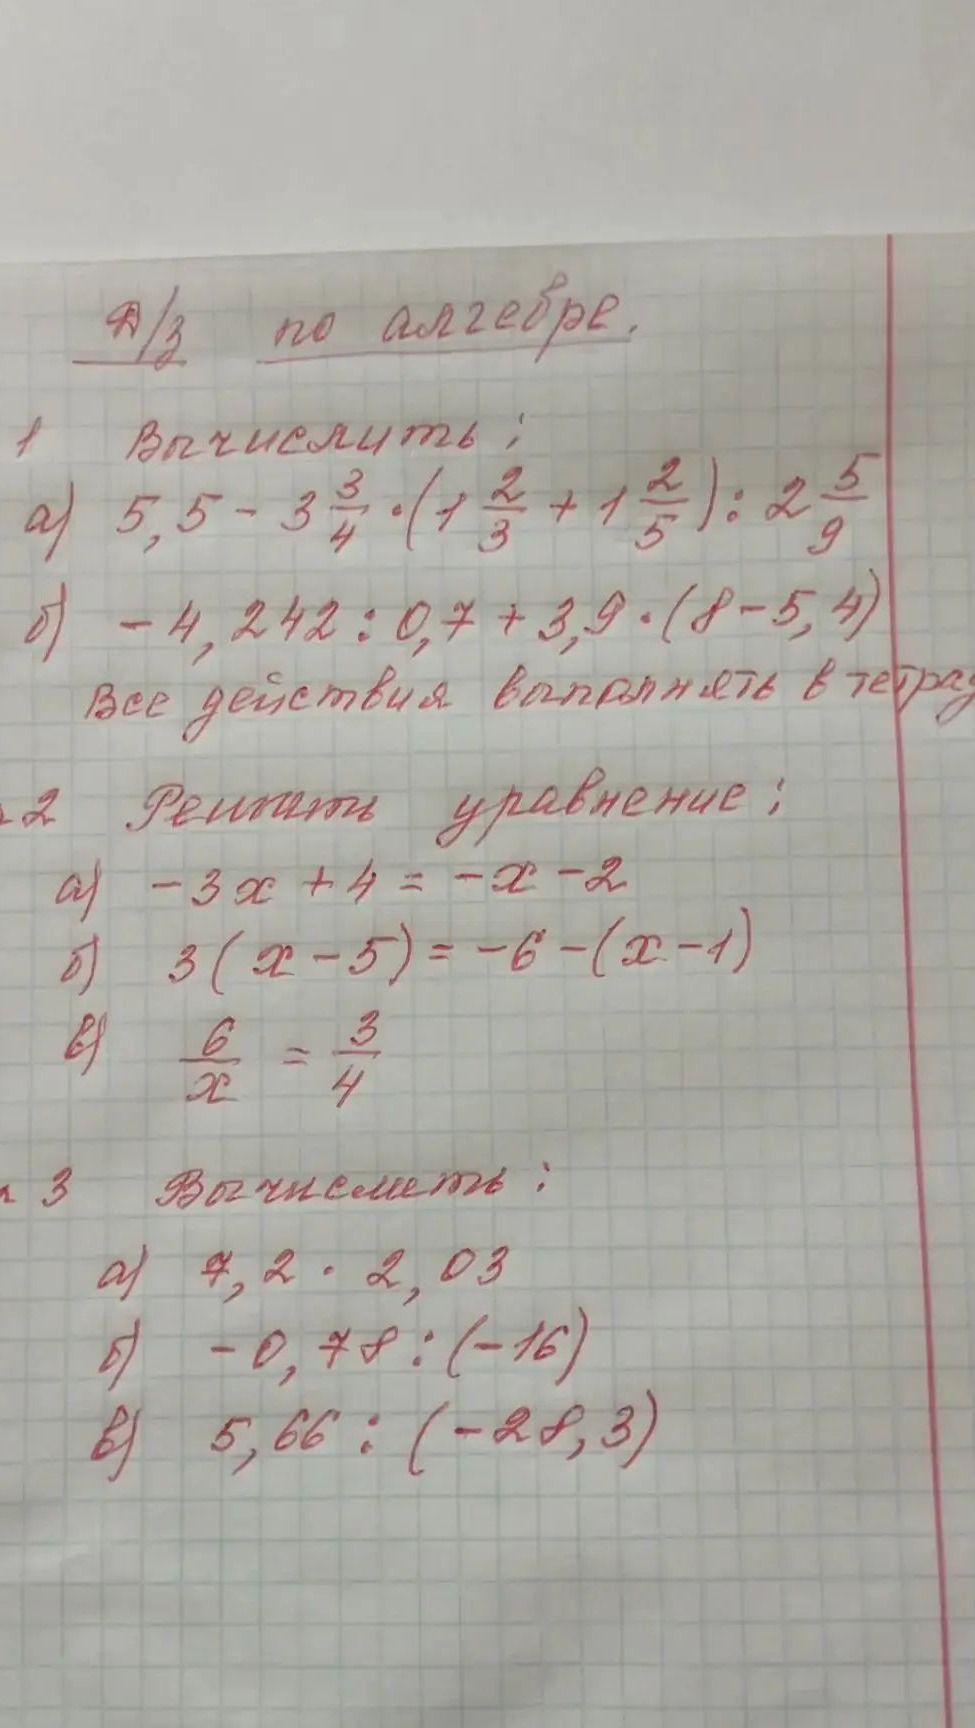 Д/з по алгебре.
1 Вычислить:
а) 5,5 - 3 3/4 · (1 2/3 + 1 2/5) : 2 5/9
б) -4,242 : 0,7 + 3,9 · (8 - 5,4)
Все действия выполнять в тетрад
2 Решить уравнение:
а) -3x + 4 = -x - 2
б) 3(x - 5) = -6 - (x - 1)
в) 6/x = 3/4
3 Вычислить:
а) 7,2 · 2,03
б) -0,78 : (-16)
в) 5,66 : (-28,3)